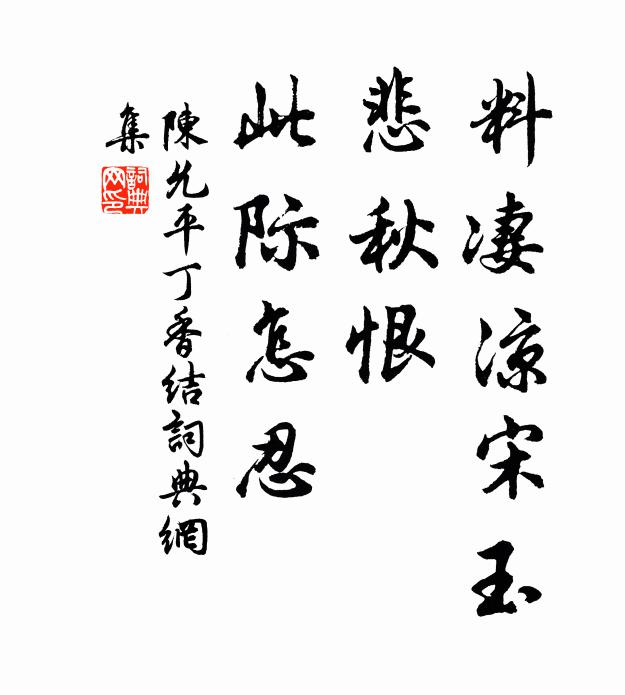 料凄涼宋玉
悲秋恨
此际怎忍
陳允平丁香结詞典網
集
詞典网印